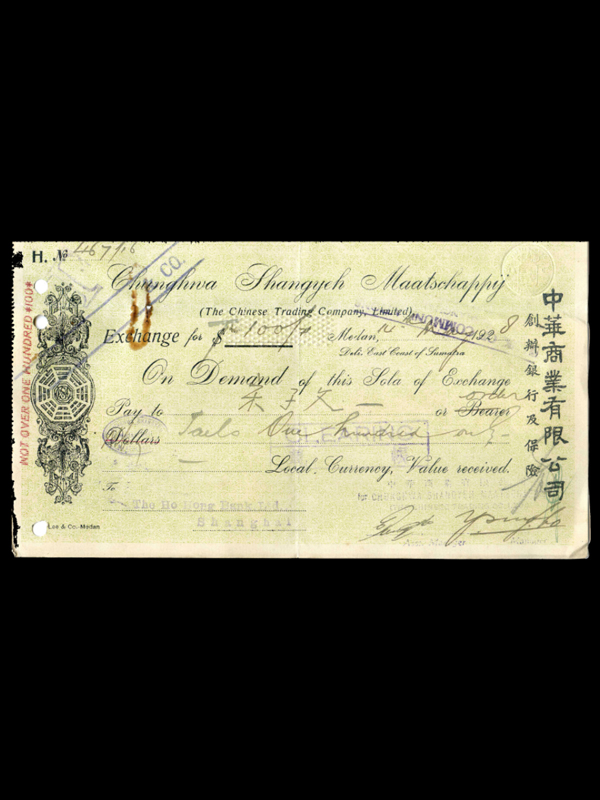 H. № 46716
CO.
Chunghwa Shangyeh Maatschappij
(The Chinese Trading Company, Limited)
COMMUNI
Exchange for $ 100/- Medan, 1928
Deli. East Coast of Sumatra
On Demand of this Sola of Exchange
Pay to or Bearer order
Dollars Taels One hundred only
Local Currency, Value received.
To
The Ho Hong Bank Ltd.
Shanghai
for CHUNGHWA SHANGYEH
Manager
Lee & Co. Medan
NOT OVER ONE HUNDRED $100$
中華商業有限公司
創辦銀行及保險